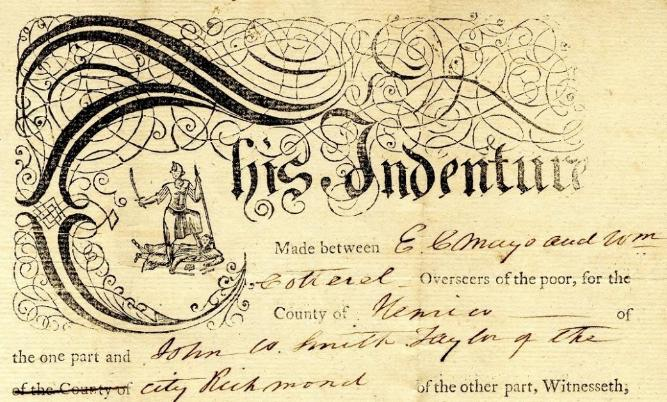 This Indenture
Made between E. C. Mayo and Wm
Cotterel Overseers of the poor, for the
County of Henrico of
the one part and John W. Smith Taylor of the
of the County of city Richmond of the other part, Witnesseth;